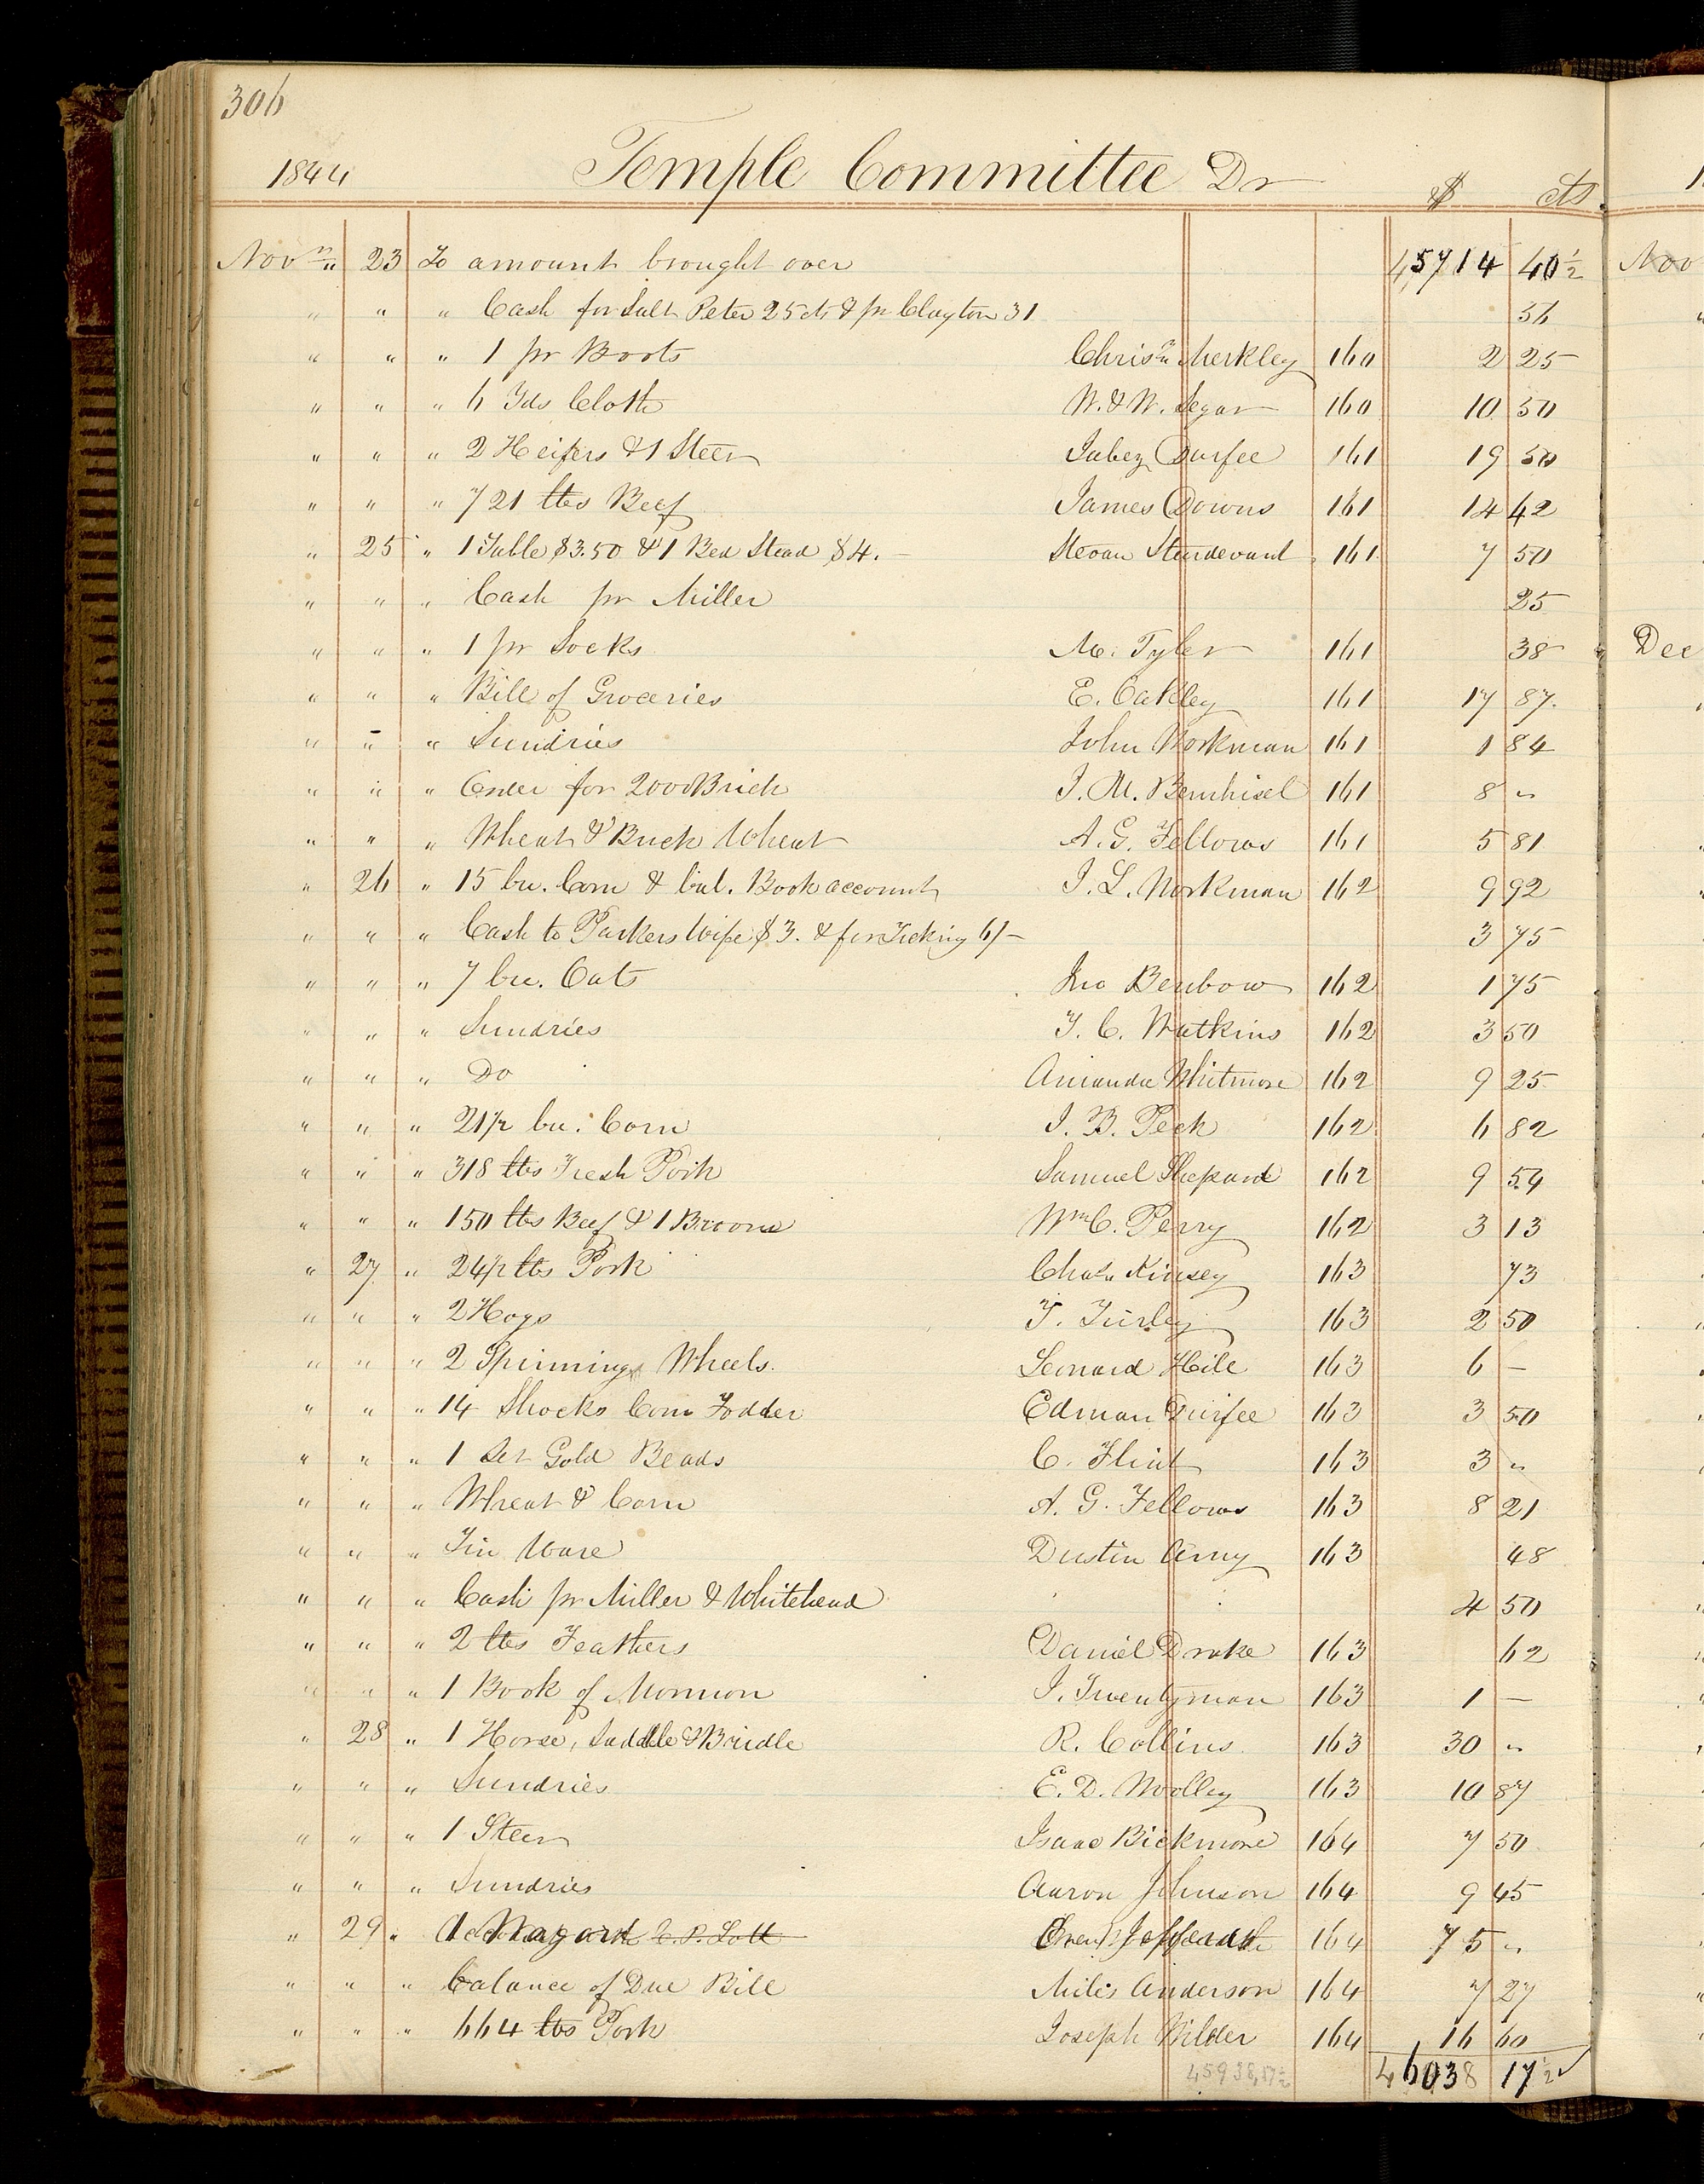 306
1844 Temple Committee Dr $ cts
Nov " 23 To amount brought over 45714 40½
" " " Cash for Salt Peter 25cts & pr Clayton 31 56
" " " 1 pr Boots Chris" Merkley 160 2 25
" " " 6 Yds Cloth W. & W. Segar 160 10 50
" " " 2 Heifers & 1 Steer Jabez Durfee 161 19 50
" " " 721 lbs Beef James Downs 161 14 42
" 25 " 1 Table $3.50 & 1 Bed Stead $4. Sturdevant 161 7 50
" " " Cash pr Miller 25
" " " 1 pr Socks M. Tyler 161 38
" " " Bill of Groceries E. Oakley 161 17 87
" " " Sundries John Workman 161 1 84
" " " Order for 2000 Brick J. M. Bernhisel 161 8 "
" " " Wheat & Buck Wheat A. G. Fellows 161 5 81
" 26 " 15 bu. Corn & bal. Book account J. L. Workman 162 9 92
" " " Cash to Parkers Wife $3. & for Ticking 6/- 3 75
" " " 7 bu. Oats Jno Benbow 162 1 75
" " " Sundries T. C. Watkins 162 3 50
" " " Do Amanda Whitmore 162 9 25
" " " 21½ bu. Corn J. B. Peck 162 6 82
" " " 318 lbs Fresh Pork Samuel Shepard 162 9 54
" " " 150 lbs Beef & 1 Broom Wm C. Perry 162 3 13
" 27 " 24½ lbs Pork Chas. Kinsey 163 73
" " " 2 Hogs T. Turley 163 2 50
" " " 2 Spinning Wheels. Leonard Hill 163 6 –
" " " 14 Shocks Corn Fodder Edman Durfee 163 3 50
" " " 1 Set Gold Beads C. Flint 163 3 "
" " " Wheat & Corn A. G. Fellows 163 8 21
" " " Tin Ware Dustin Amy 163 48
" " " Cash pr Miller & Whitehead 4 50
" " " 2 lbs Feathers Daniel Drake 163 62
" " " 1 Book of Mormon J. Twentyman 163 1 –
" 28 " 1 Horse, Saddle & Bridle R. Collins 163 30 "
" " " Sundries E. D. Woolley 163 10 87
" " " 1 Steer Isaac Bickmore 164 7 50
" " " Sundries Aaron Johnson 164 9 45
" 29 " 1 Wagon 164 75 "
" " " balance of Due Bill Miles Anderson 164 7 27
" " " 664 lbs Pork Joseph Wilder 164 16 60
45938,17½ 46038 17½ ✓
1
Nov
Dec